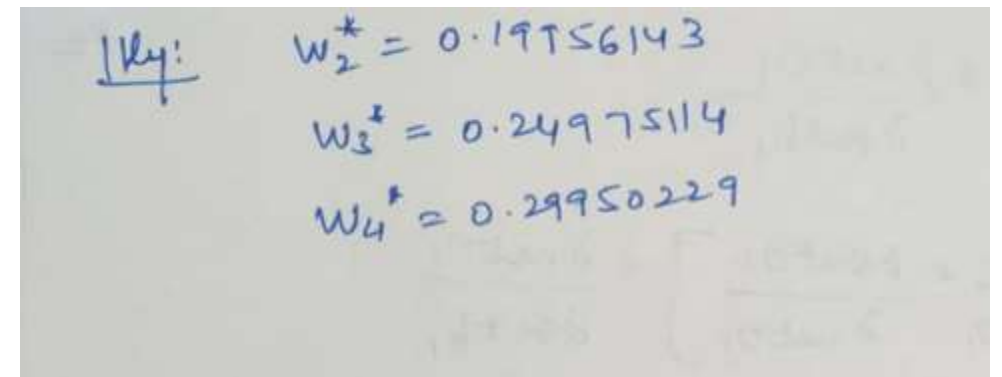 |lly: W₂* = 0.19956143
W₃* = 0.24975114
W₄* = 0.29950229